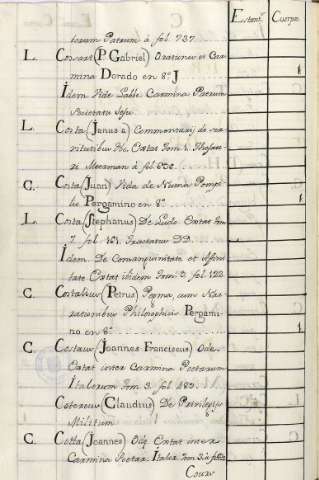 Estant.^e Cuerpo
torum Patrum à fol. 737.
L. Cossart (P. Gabriel) Orationes et Carmina Dorado en 8º J 1
Idem Vide Sable Carmina Patrum
Societatis Jesu
L. Costa (Janus a) Commentarij de
Hc. Extat Tom. 1. Thesauri Meerman à fol.
C. Costa (Juan) Vida de Numa Pompilio Pergamino en 8º 1
L. Costa (Stephanus) De Ludo Extat Tom.
7. fol. 161. Tractatus DD.
Idem. De Consanguinitate et Affinitate Extat ibidem Tom. 9. fol. 122
C. Costalius (Petrus) Pegma, cum Narrationibus Philosophicis Pergamino en 8º 1
C. Costaus (Joannes Franciscus) Ode
Extat inter Carmina Poetarum
Italorum Tom. 3. fol. 483.
Cotereus (Claudius) De Privilegijs
Militum
C. Cotta (Joannes) Ode Extat inter
Carmina Poetar. Italor. Tom. 3. à fol.